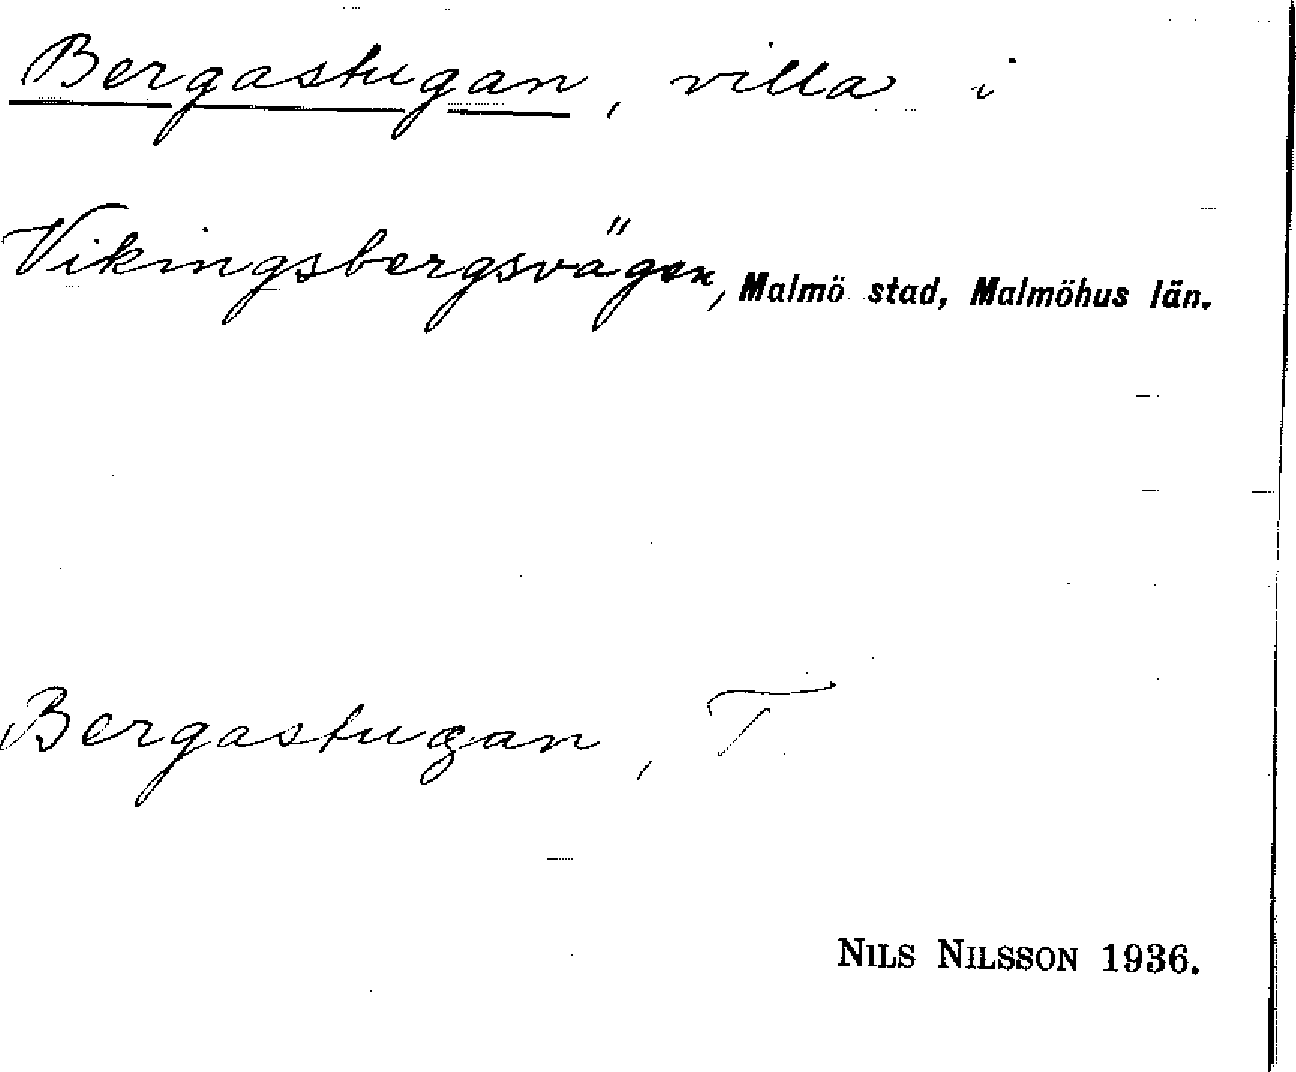 Bergastugan, villa i
Vikingsbergsvägen, Malmö stad, Malmöhus län.
Bergastugan, T
NILS NILSSON 1936.